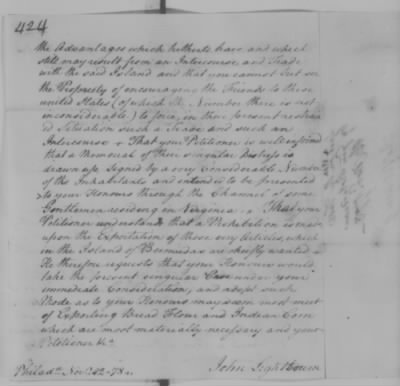 424
the Advantages which hitherto have and which
still may result from an Intercourse and Trade
with the said Island and that you cannot but see
the Propriety of encouraging the Friends to these
united States (of which the Number there is not
inconsiderable) to force, in their present
Situation such a Trade and such an
Intercourse + That your Petitioner is well informed
that a Memorial of their singular Distress is
drawn up Signed by a very Considerable Number
of the Inhabitants and intended to be presented
to your Honours through the Channel of some
Gentlemen residing in Virginia + That your
Petitioner understands that a Prohibition is now
upon the Exportation of those very Articles which
in the Island of Bermudas are chiefly wanted +
He therefore requests that your Honours would
take the present singular Case under your
immediate Consideration, and adopt such
Mode as to your Honours may seem most meet
of Exporting Bread Flour and Indian Corn
which are most materially necessary and your
Petitioner &c
Philada Novr 12 - 78.
John Lightbourn